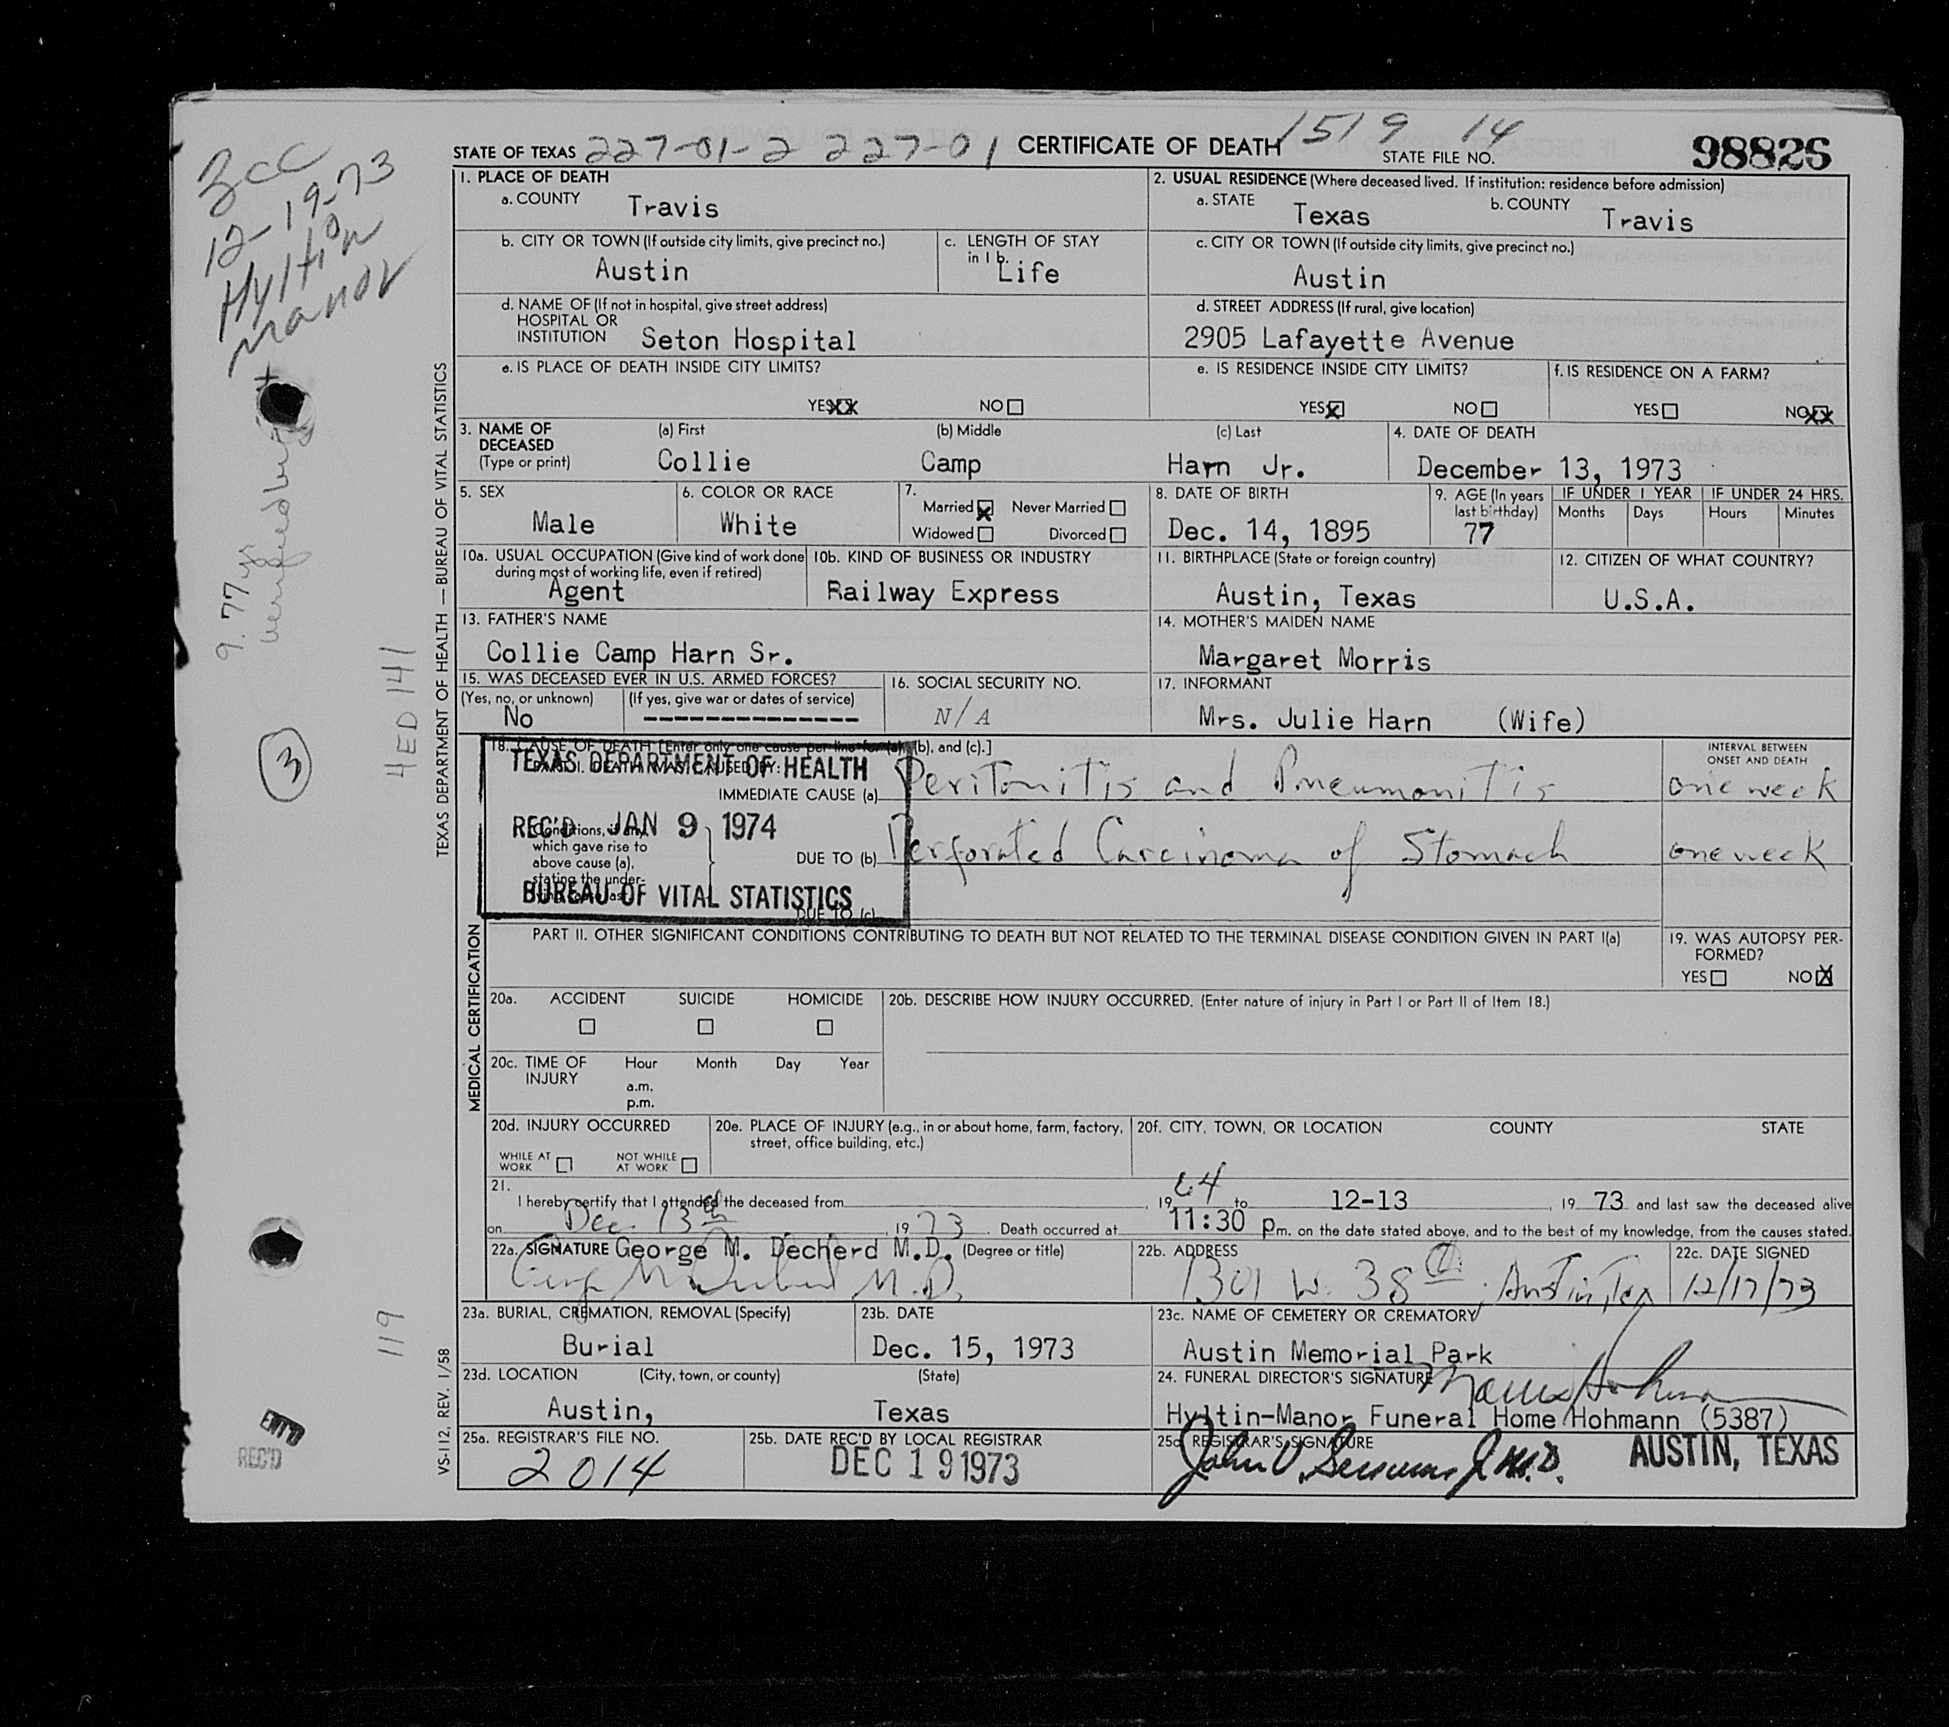 3cc
12-19-73
Hyltin
manor
9. 77 yr
verified by
3
4ED141
119
ENT'D
REC'D
TEXAS DEPARTMENT OF HEALTH — BUREAU OF VITAL STATISTICS
MEDICAL CERTIFICATION
VS-112, REV. 1/58
STATE OF TEXAS 227-01-2 227-01 CERTIFICATE OF DEATH 1519 14 STATE FILE NO. 98826
1. PLACE OF DEATH
a. COUNTY Travis
2. USUAL RESIDENCE (Where deceased lived. If institution: residence before admission)
a. STATE Texas b. COUNTY Travis
b. CITY OR TOWN (If outside city limits, give precinct no.)
Austin
c. LENGTH OF STAY in 1 b. Life
c. CITY OR TOWN (If outside city limits, give precinct no.)
Austin
d. NAME OF (If not in hospital, give street address)
HOSPITAL OR
INSTITUTION Seton Hospital
d. STREET ADDRESS (If rural, give location)
2905 Lafayette Avenue
e. IS PLACE OF DEATH INSIDE CITY LIMITS?
YES XX NO
e. IS RESIDENCE INSIDE CITY LIMITS?
YES X NO
f. IS RESIDENCE ON A FARM?
YES NO XX
3. NAME OF DECEASED (Type or print)
(a) First (b) Middle (c) Last
Collie Camp Harn Jr.
4. DATE OF DEATH
December 13, 1973
5. SEX
Male
6. COLOR OR RACE
White
7.
Married X Never Married
Widowed Divorced
8. DATE OF BIRTH
Dec. 14, 1895
9. AGE (In years last birthday)
77
IF UNDER 1 YEAR IF UNDER 24 HRS.
Months Days Hours Minutes
10a. USUAL OCCUPATION (Give kind of work done during most of working life, even if retired)
Agent
10b. KIND OF BUSINESS OR INDUSTRY
Railway Express
11. BIRTHPLACE (State or foreign country)
Austin, Texas
12. CITIZEN OF WHAT COUNTRY?
U.S.A.
13. FATHER'S NAME
Collie Camp Harn Sr.
14. MOTHER'S MAIDEN NAME
Margaret Morris
15. WAS DECEASED EVER IN U.S. ARMED FORCES?
(Yes, no, or unknown) (If yes, give war or dates of service)
No ---------------
16. SOCIAL SECURITY NO.
N/A
17. INFORMANT
Mrs. Julie Harn (Wife)
18. CAUSE OF DEATH [Enter only one cause per line for (a), (b), and (c).]
PART I. DEATH WAS CAUSED BY:
TEXAS DEPARTMENT OF HEALTH
REC'D JAN 9 1974
BUREAU OF VITAL STATISTICS
IMMEDIATE CAUSE (a) Peritonitis and Pneumonitis
INTERVAL BETWEEN ONSET AND DEATH
one week
Conditions, if any,
which gave rise to
above cause (a),
stating the under-
lying cause last.
DUE TO (b) Perforated Carcinoma of Stomach
one week
DUE TO (c)
PART II. OTHER SIGNIFICANT CONDITIONS CONTRIBUTING TO DEATH BUT NOT RELATED TO THE TERMINAL DISEASE CONDITION GIVEN IN PART I(a)
19. WAS AUTOPSY PER-
FORMED?
YES NO X
20a. ACCIDENT SUICIDE HOMICIDE
20b. DESCRIBE HOW INJURY OCCURRED. (Enter nature of injury in Part I or Part II of Item 18.)
20c. TIME OF INJURY Hour Month Day Year
a.m.
p.m.
20d. INJURY OCCURRED
WHILE AT WORK NOT WHILE AT WORK
20e. PLACE OF INJURY (e.g., in or about home, farm, factory,
street, office building, etc.)
20f. CITY, TOWN, OR LOCATION COUNTY STATE
21.
I hereby certify that I attended the deceased from , 19 64 to 12-13 , 19 73 and last saw the deceased alive
on Dec. 13th , 19 73 . Death occurred at 11:30 p m. on the date stated above, and to the best of my knowledge, from the causes stated.
22a. SIGNATURE George M. Decherd M.D. (Degree or title)
George M Decherd M.D.
22b. ADDRESS
1301 W. 38th. Austin, Tex
22c. DATE SIGNED
12/17/73
23a. BURIAL, CREMATION, REMOVAL (Specify)
Burial
23b. DATE
Dec. 15, 1973
23c. NAME OF CEMETERY OR CREMATORY
Austin Memorial Park
23d. LOCATION (City, town, or county) (State)
Austin, Texas
24. FUNERAL DIRECTOR'S SIGNATURE
Hyltin-Manor Funeral Home Hohmann (5387)
25a. REGISTRAR'S FILE NO.
2014
25b. DATE REC'D BY LOCAL REGISTRAR
DEC 19 1973
25c. REGISTRAR'S SIGNATURE
AUSTIN, TEXAS